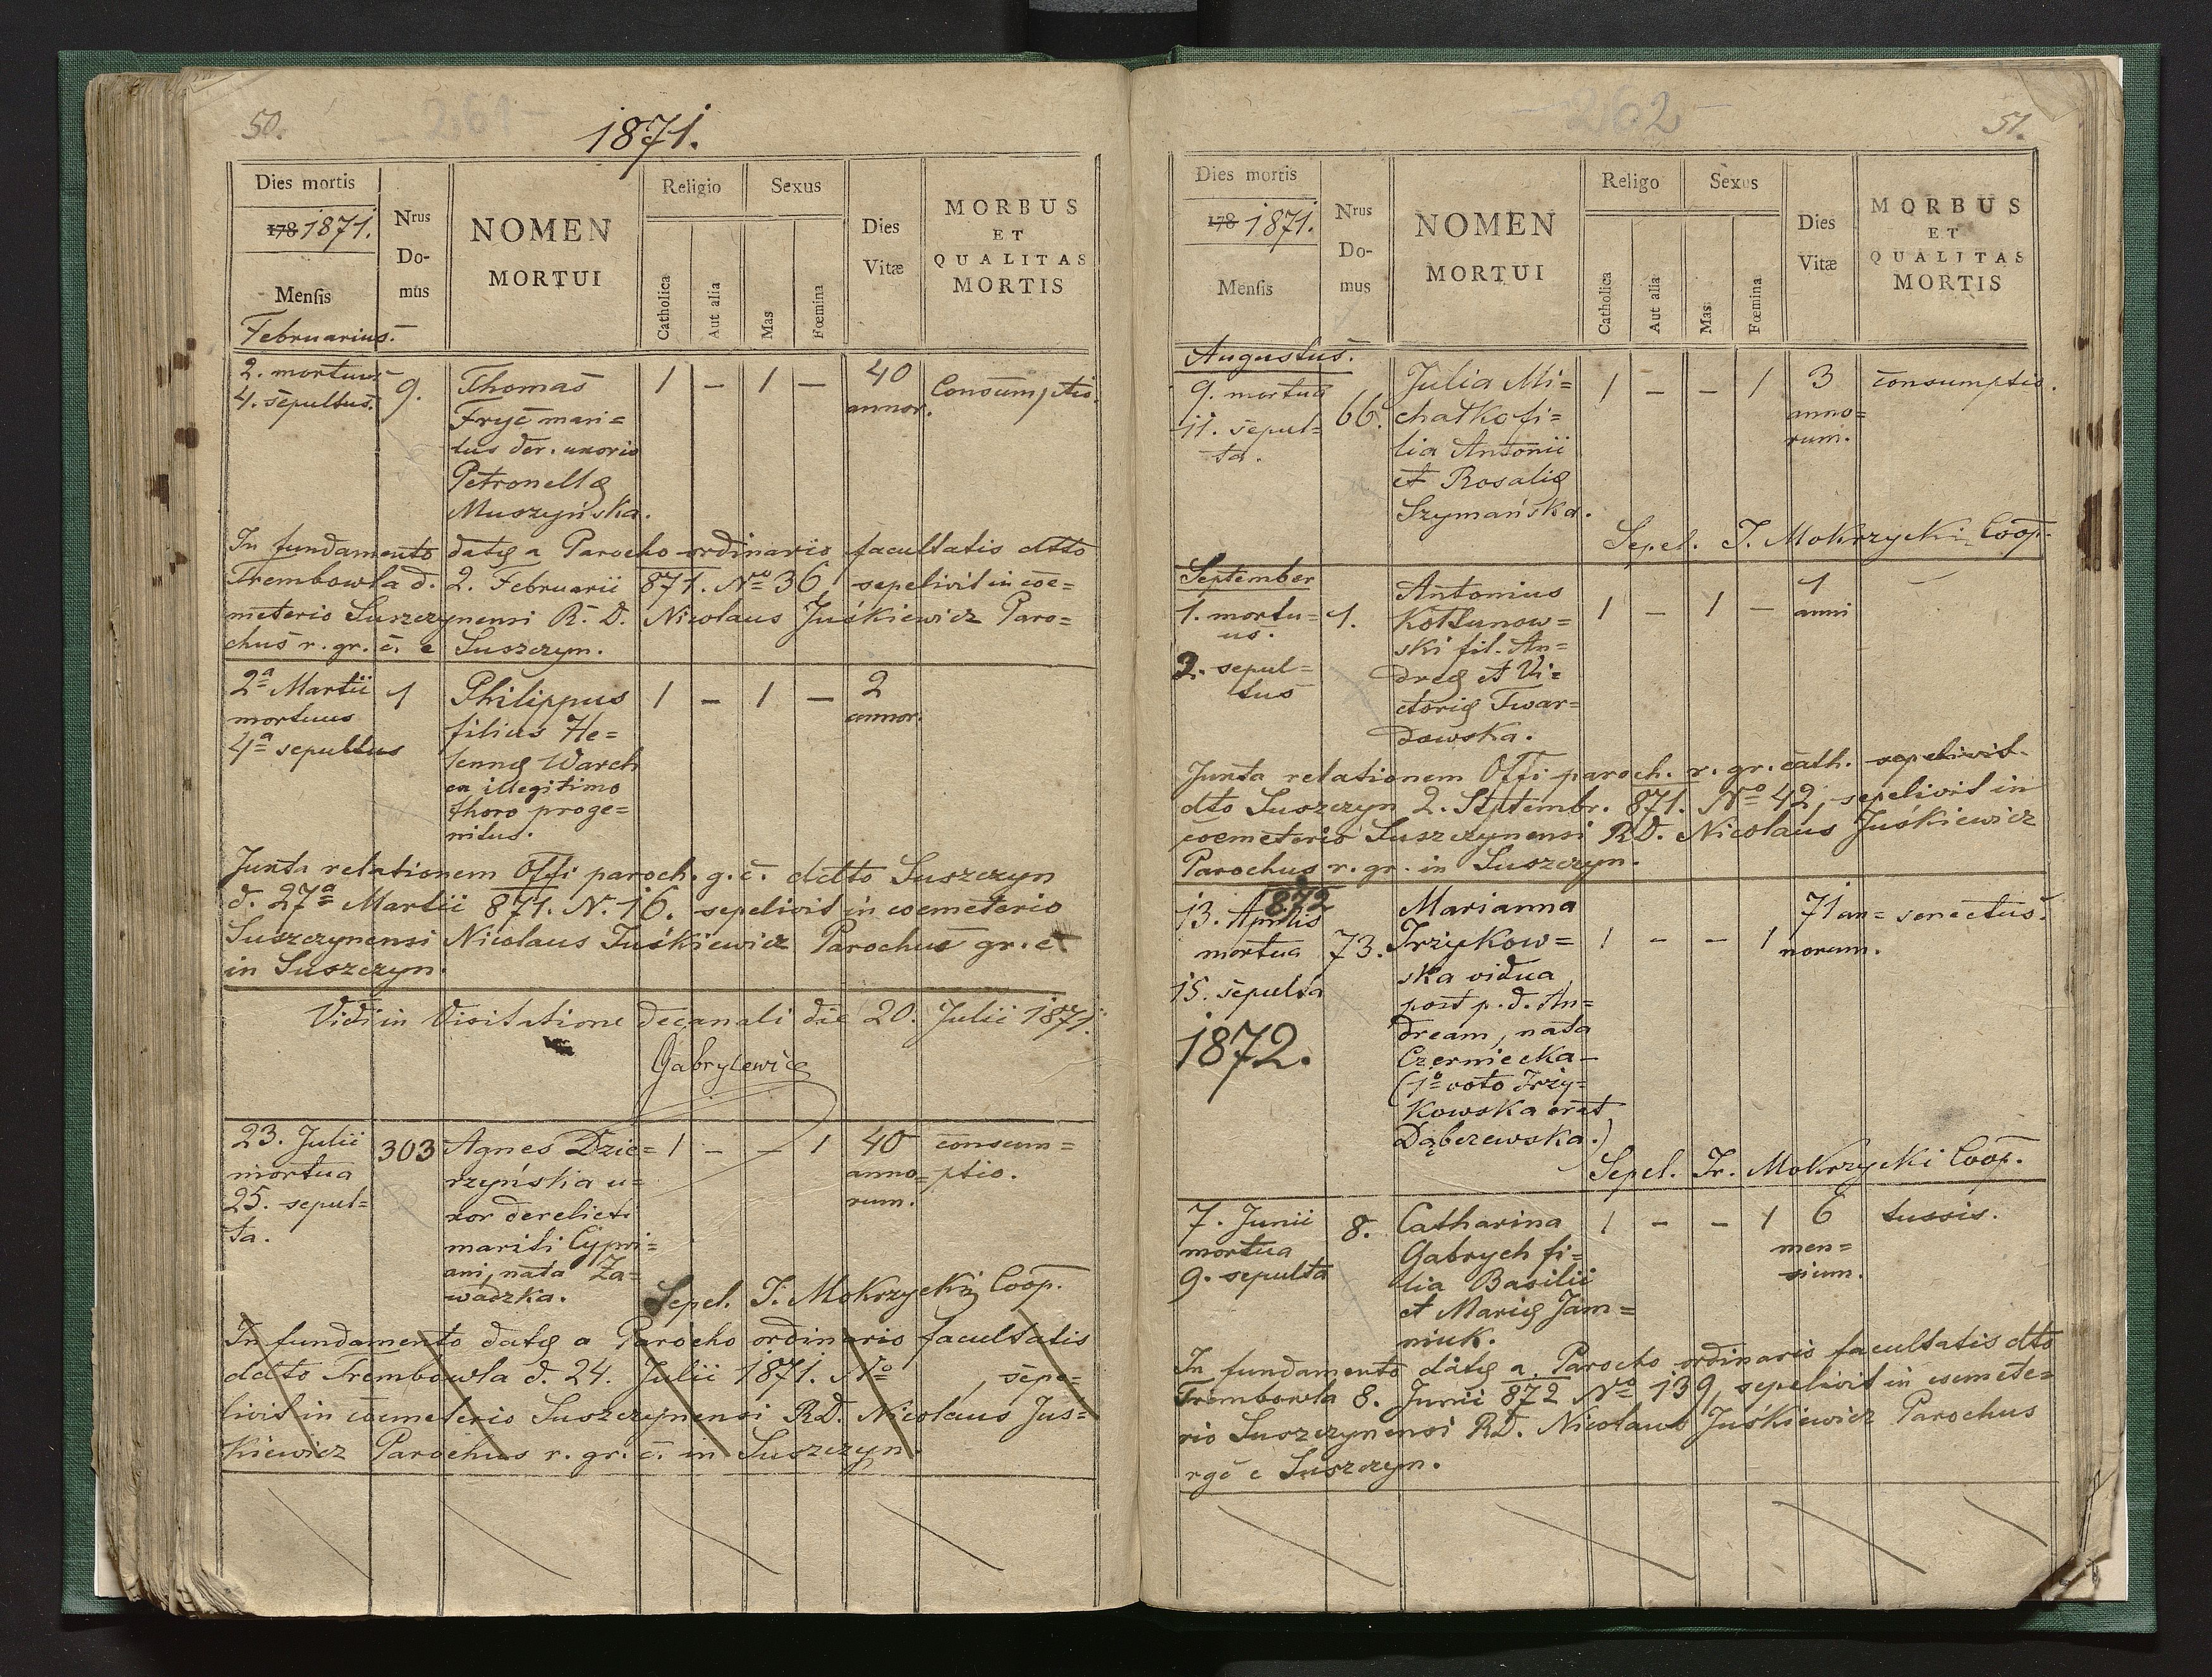 50.
- 261 -
1871.
Dies mortis
178 1871.
Mensis
Februarius.
Nrus
Do-
mus
NOMEN
MORTUI
Religio
Catholica
Aut alia
Sexus
Mas
Fœmina
Dies
Vitæ
MORBUS
ET
QUALITAS
MORTIS
2. mortuus
4. sepultus.
9.
Thomas
Fryč mari=
tus der. uxoris
Petronellę
Muszyńska.
1 - 1 -
40
annor.
Consumptio.
In fundamento datę a Parocho ordinario facultatis ddto
Trembowla d. 2. Februarii 871. No 36, sepelivit in coe=
meterio Suszczynensi R. D. Nicolaus Juśkiewicz Paro=
chus r. gr. c. e Suszczyn.
2a Martii
mortuus
4a sepultus
1
Philippus
filius He=
lennę Warch
ex illegitimo
thoro proge=
nitus.
1 - 1 -
2
annor.
Juxta relationem Offi paroch. g. c. ddto Suszczyn
d. 27a Martii 871. N. 16. sepelivit in coemeterio
Suszczynensi Nicolaus Juśkiewicz Parochus gr. c
in Suszczyn.
Vidi in Visitatione decanali die 20. Julii 1871.
Gabrylewicz
23. Julii
mortua
25. sepul=
ta.
303
Agnes Dzie=
rzyńska u=
xor derelicti
mariti Cypri=
ani, nata Za=
wadzka.
1 - - 1
40
anno=
rum.
consum=
ptio.
Sepel. T. Mokrzycki Coop.
In fundamento datę a Parocho ordinario facultatis
ddto Trembowla d. 24. Julii 1871. No , sepe=
livit in coemeterio Suszczynensi RD. Nicolaus Jus=
kiewicz Parochus r. gr. c. in Suszczyn.
- 262 -
51.
Dies mortis
178 1871.
Mensis
Nrus
Do-
mus
NOMEN
MORTUI
Religo
Catholica
Aut alia
Sexus
Mas
Fœmina
Dies
Vitæ
MORBUS
ET
QUALITAS
MORTIS
Augustus.
9. mortua
11. sepul=
ta.
66.
Julia Mi=
chatko fi=
lia Antonii
et Rosalię
Szymańska.
1 - - 1
3
anno=
rum.
consumptio.
Sepel. T. Mokrzycki Coop.
September
1. mortu=
us.
2. sepul=
tus
1.
Antonius
Kotłunow=
ski fil. An=
dreę et Vi=
ctorię Twar=
dowska.
1 - 1 -
1
anni
-
Juxta relationem Offi paroch. r. gr. cath. sepelivit
dto Suszczyn 2. Septembr. 871. No 42, sepelivit in
coemeterio Suszczynensi RD. Nicolaus Juśkiewicz
Parochus r. gr. in Suszczyn.
872
13. Aprilis
mortua
15. sepulta
1872.
73.
Marianna
Trzykow=
ska vidua
post p. d. An=
dream, nata
Czerniecka -
(1o voto Trzy=
kowska erat
Dąbczewska.)
1 - - 1
71 an=
norum.
senectus.
Sepel. Tr. Mokrzycki Coop.
7. Junii
mortua
9. sepulta
8.
Catharina
Gabrych fi=
lia Basilii
et Marię Jam=
niuk.
1 - - 1
6
men=
sium.
tussis.
In fundamento datę a Parocho ordinario facultatis dto
Trembowla 8. Junii 872 No 139, sepelivit in coemete=
rio Suszczynensi RD. Nicolaus Juśkiewicz Parochus
rgc e Suszczyn.